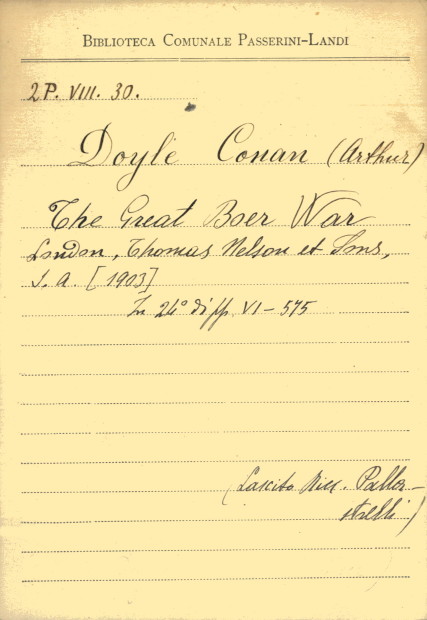 BIBLIOTECA COMUNALE PASSERINI-LANDI
2P. VIII. 30.
Doyle Conan (Arthur)
The Great Boer War
London, Thomas Nelson et Sons,
s. a. [1903]
In 24° di pp. VI-575
(Lascito Nicc. Palla-
strelli)